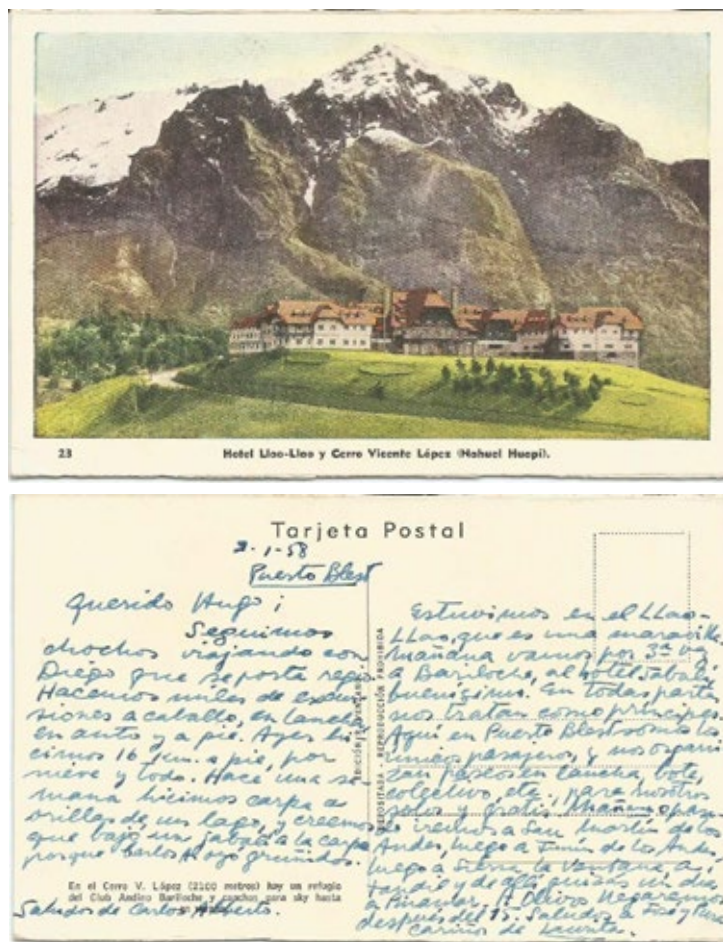 23 Hotel Llao-Llao y Cerro Vicente López (Nahuel Huapi).
Tarjeta Postal
2-1-58
Puerto Blest
Querido Hugo:
Seguimos
chochos viajando con
Diego que se porta
Hacemos miles de excur
siones a caballo, en lancha
en auto y a pie. Ayer hi
cimos 16 km. a pie, por
nieve y todo. Hace una se-
mana hicimos carpa a
orillas de un lago, y creemos
que bajó un jabalí a la carpa
porque Carlos oyó gruñidos.
En el Cerro V. López (2100 metros) hay un refugio
del Club Andino Bariloche y canchas para sky hasta
Saludos de Carlos Alberto.
DEPOSITADA - REPRODUCCIÓN PROHIBIDA
Estuvimos en el LLao-
LLao, que es una maravilla.
Mañana vamos por 3ª vez
a Bariloche, al hotel Jabalí,
buenísimo. En todas partes
nos tratan como príncipes.
Aquí en Puerto Blest somos los
únicos pasajeros, y nos organi
zan paseos en lancha, bote,
colectivo, etc. para nosotros
solos y gratis. Mañana
iremos a San Martín de los
Andes, luego a Junín de los Andes,
luego a Sierra la Ventana, a
Tandil y de allí quizás un día
a Pinamar. A Olivos llegaremos
después del 15. Saludos a
cariños de